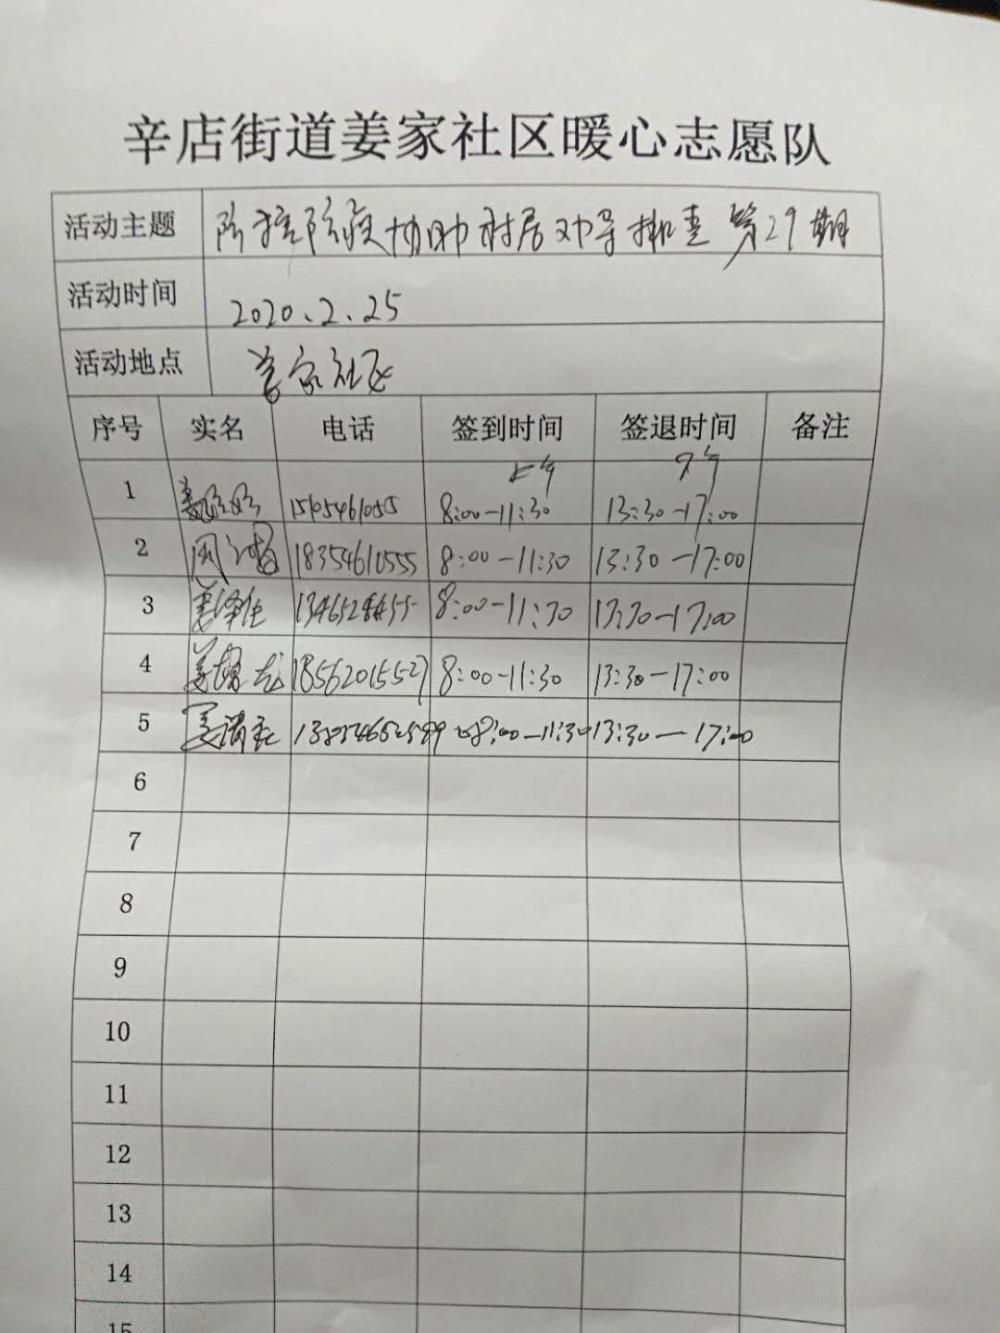 辛店街道姜家社区暖心志愿队
活动主题 防控防疫协助 居 导排查第29期
活动时间 2020.2.25
活动地点 姜家社区
序号 实名 电话 签到时间 签退时间 备注
上午 下午
1 姜 8:00-11:30 13:30-17:00
2 周 18354610555 8:00-11:30 13:30-17:00
3 姜 8:00-11:30 13:30-17:00
4 姜 龙 18562015527 8:00-11:30 13:30-17:00
5 姜 8:00-11:30 13:30-17:00
6
7
8
9
10
11
12
13
14
15